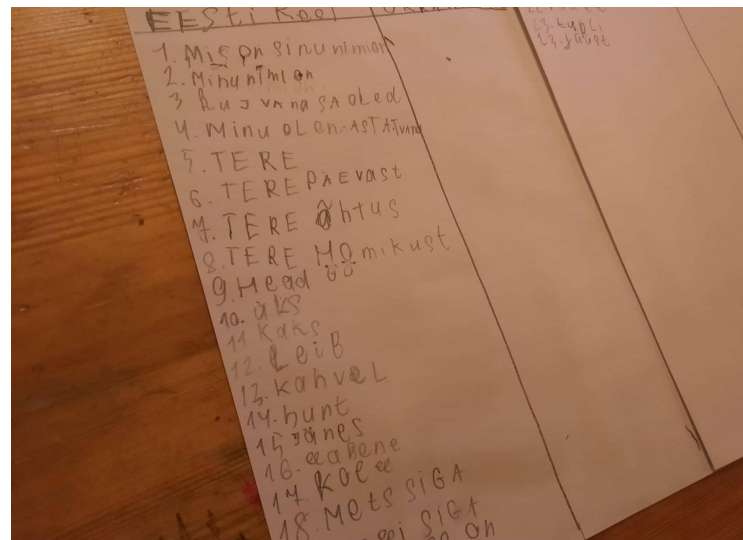 EESti Keel
1. Mis on sinu nimi on
2. Minu nimi on
3 Kui vana sA oled
4. Minu oLen. ASTAT vana
5. TERE
6. TERE PÄEVast
7. TERE õhtus
8. TERE HOmikust
9. Head öö
10. üks
11. Kaks
12. LeiB
13. kahveL
14. hunt
15 jänes
16. eahene
17. Kol
18. Mets SiGA
SiGA
on
23. tupli